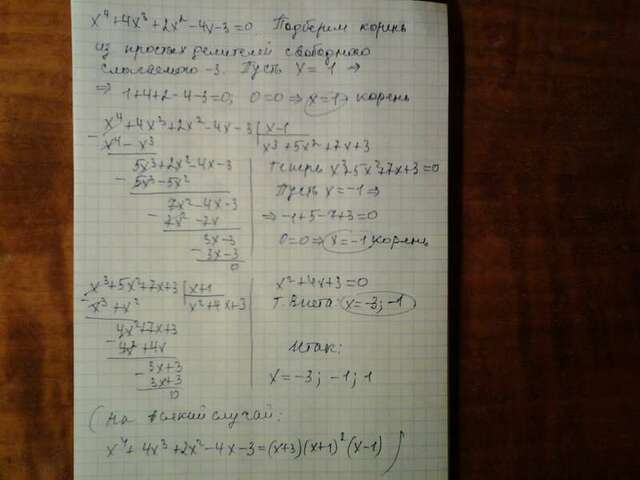 x⁴+4x³+2x²-4x-3=0 Подберем корень
из простых делителей свободного
слагаемого -3. Пусть x=1 ⇒
⇒ 1+4+2-4-3=0; 0=0 ⇒ x=1 - корень
x⁴+4x³+2x²-4x-3 | x-1
- x⁴-x³
x³+5x²+7x+3
5x³+2x²-4x-3
- 5x³-5x²
7x²-4x-3
- 7x²-7x
3x-3
- 3x-3
0
Теперь x³+5x²+7x+3=0
Пусть x=-1 ⇒
⇒ -1+5-7+3=0
0=0 ⇒ x=-1 корень
x³+5x²+7x+3 | x+1
- x³+x²
x²+4x+3
4x²+7x+3
- 4x²+4x
3x+3
- 3x+3
0
x²+4x+3=0
Т. Виета: x=-3; -1
Итак:
x=-3; -1; 1
(На всякий случай:
x⁴+4x³+2x²-4x-3=(x+3)(x+1)²(x-1))